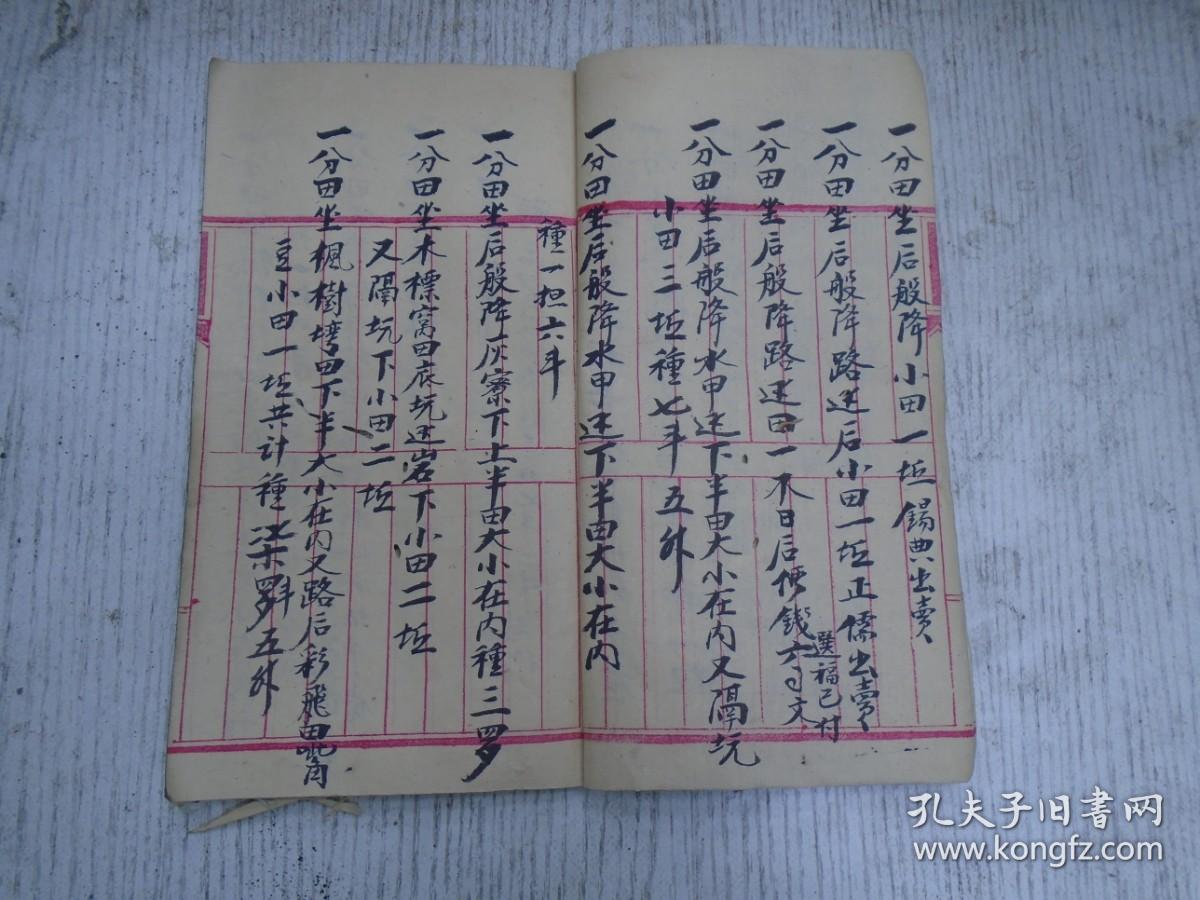 一分田坐后般降小田一坵 錫典出賣
一分田坐后般降路迷后小田一坵正儒出賣
一分田坐后般降路迷田一不日后便錢六百文
選福已付
一分田坐后般降水甲迷下半由大小在内又隔坑
小田三坵種七斗五升
一分田坐后般降水甲迷下半由大小在内
種一担六斗
一分田坐后般降灰寮下上半由大小在内種三罗
一分田坐木標窩田底坑迷岩下小田二坵
又隔坑下小田二坵
一分田坐楓樹塆田下半大小在内又路后彩飛田
豆小田一坵共計種 五升
孔夫子旧书网
www.kongfz.com